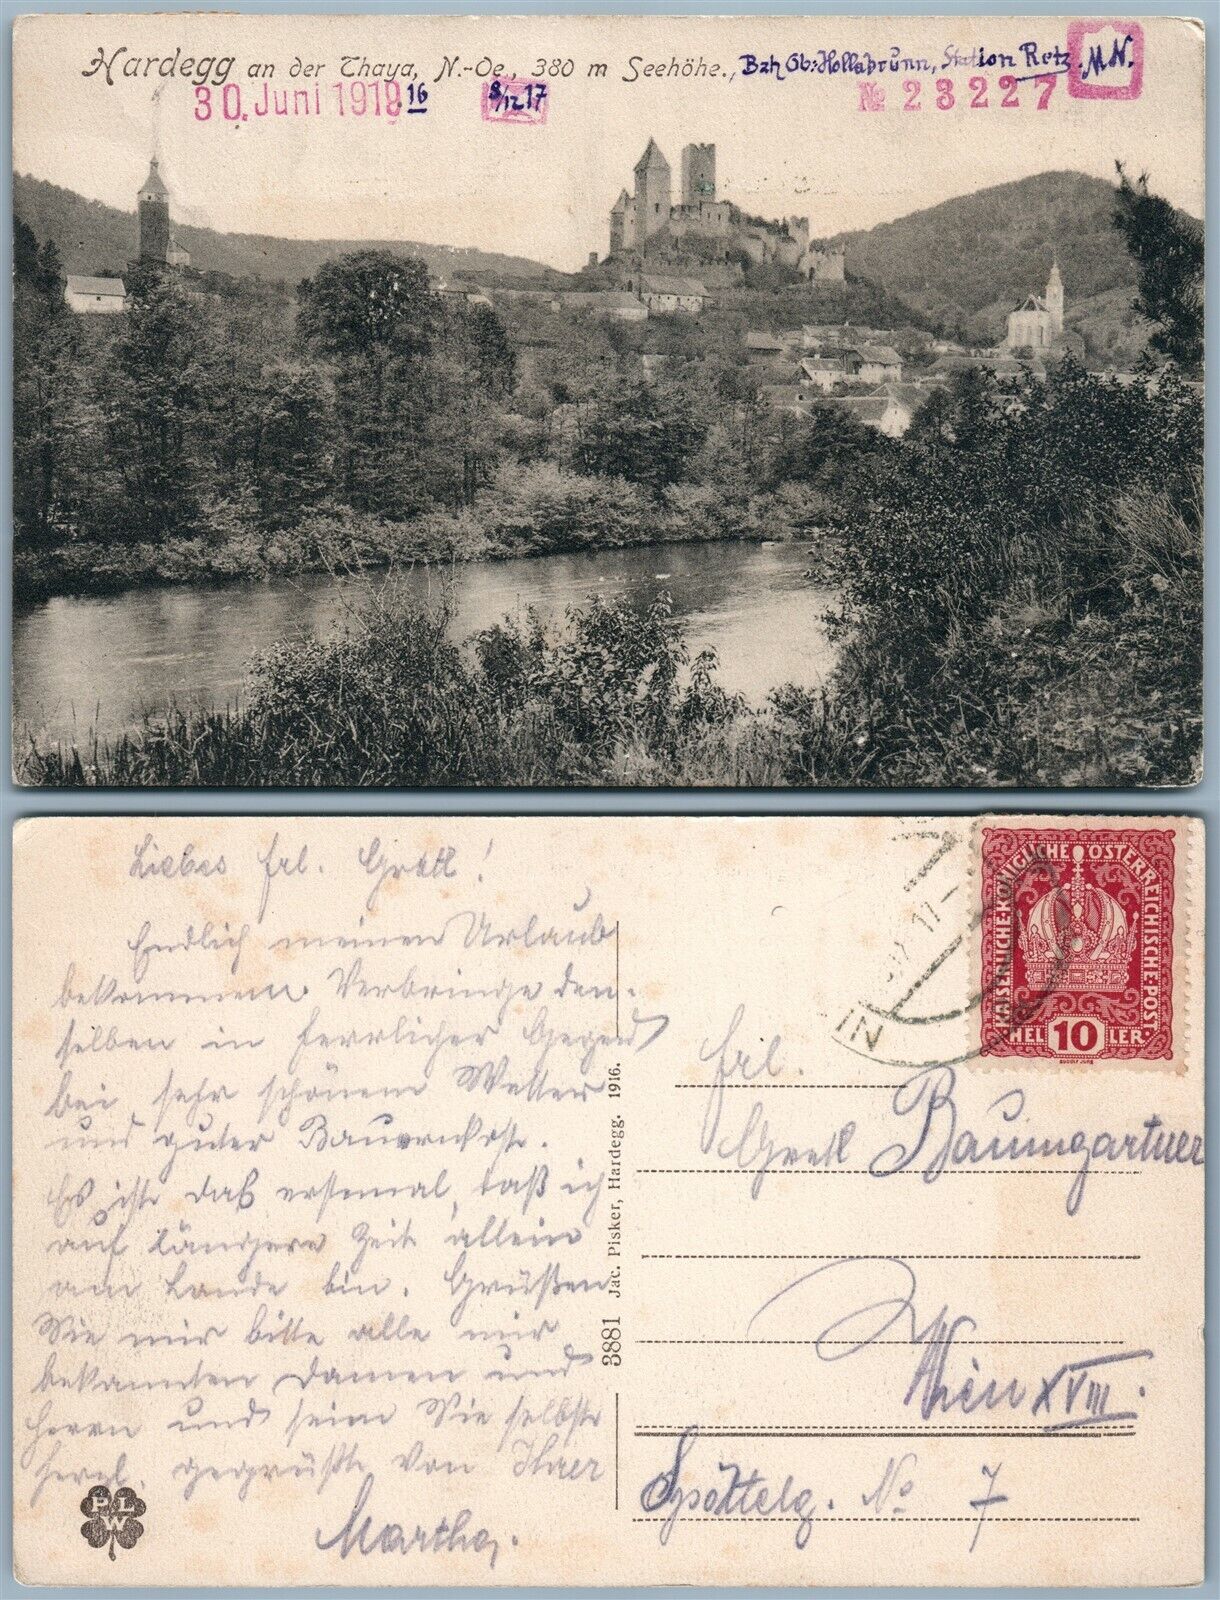 Hardegg an der Thaya, N.-Oe., 380 m Seehöhe., Bzh Gb: Hollabrunn, Station Retz. M.N.
30. Juni 1918 16 8/12 17 No 23227
Liebes Frl. Gretl!
Endlich meinen Urlaub
bekommen. Verbringe den-
selben in herrlicher Gegend
bei sehr schönem Wetter
und guter Bauernkost.
Es ist das erstemal, daß ich
auf längere Zeit allein
am Lande bin. Grüßen
Sie mir bitte alle mir
bekannten Damen und
Herrn und seien Sie selbst
herzl. gegrüßt von Ihrer
Martha.
PLW
3881 Jac. Pisker, Hardegg. 1916.
KAISERLICHE KÖNIGLICHE ÖSTERREICHISCHE POST
HEL 10 LER
Frl.
Gretl Baumgartner
Wien XVIII.
Spöttelg. No 7